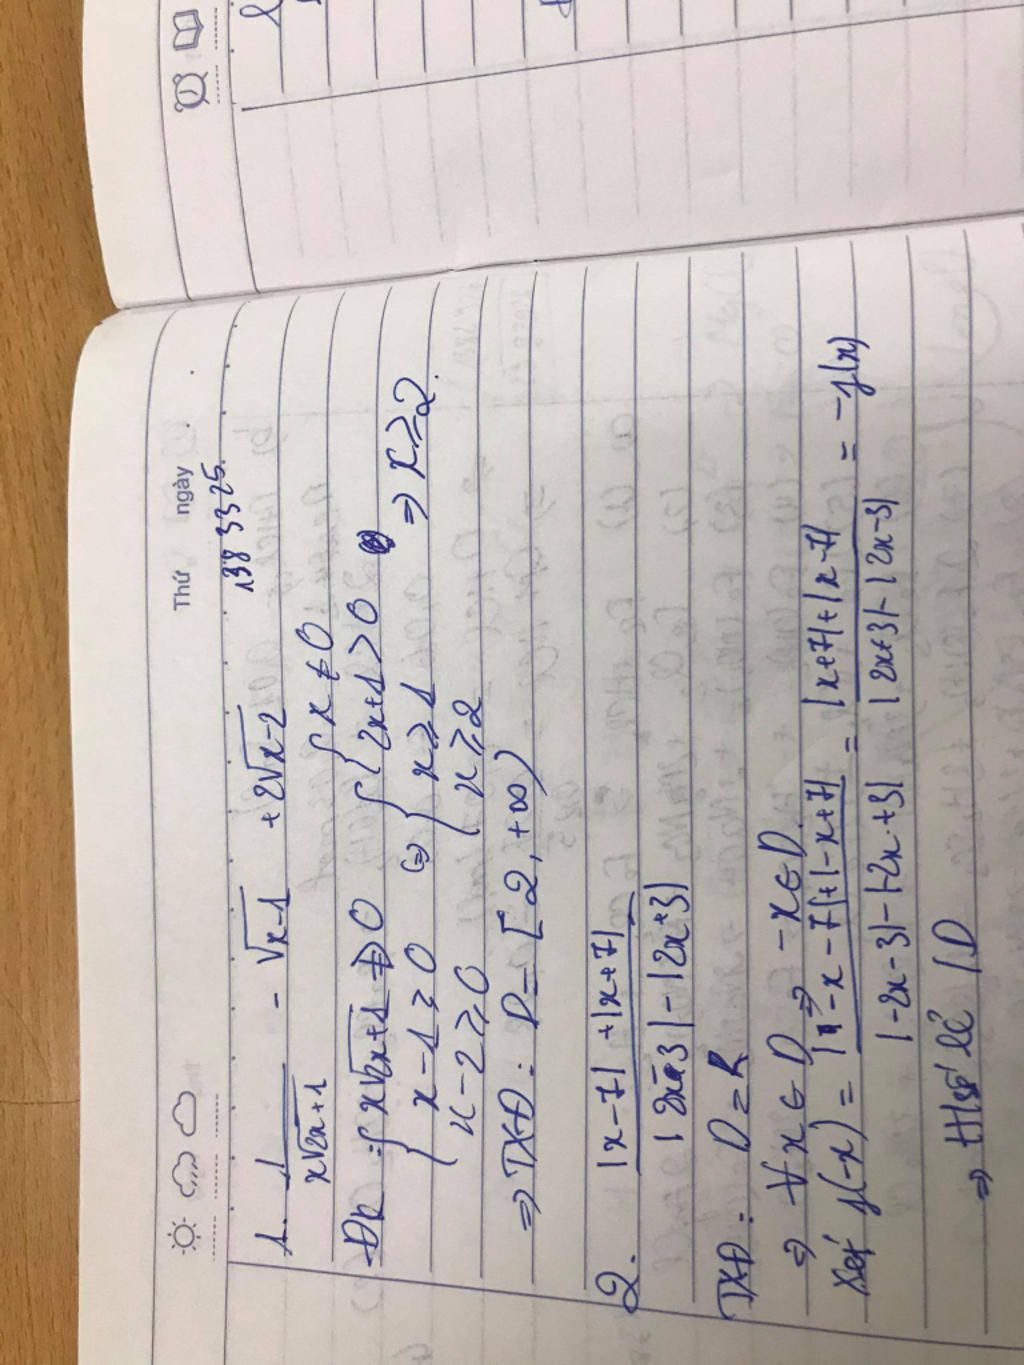 Thứ ngày
138 3325.
1. 1/(x√(2x+1)) - √(x-1) + 2√(x-2)
Đk: { x√(2x+1) ≠ 0 { x ≠ 0
{ x-1 ≥ 0 ⇔ { 2x+1 > 0
x-2 ≥ 0 { x ≥ 1 ⇒ x ≥ 2.
{ x ≥ 2
⇒ TXĐ: D = [2, +∞)
2. (|x-7| + |x+7|)/(|2x-3| - |2x+3|)
TXĐ: D = R
⇒ ∀x ∈ D ⇒ -x ∈ D
Xét y(-x) = (|-x-7| + |-x+7|)/(|-2x-3| - |-2x+3|) = (|x+7| + |x-7|)/(|2x+3| - |2x-3|) = -y(x)
⇒ Hsố lẻ /D